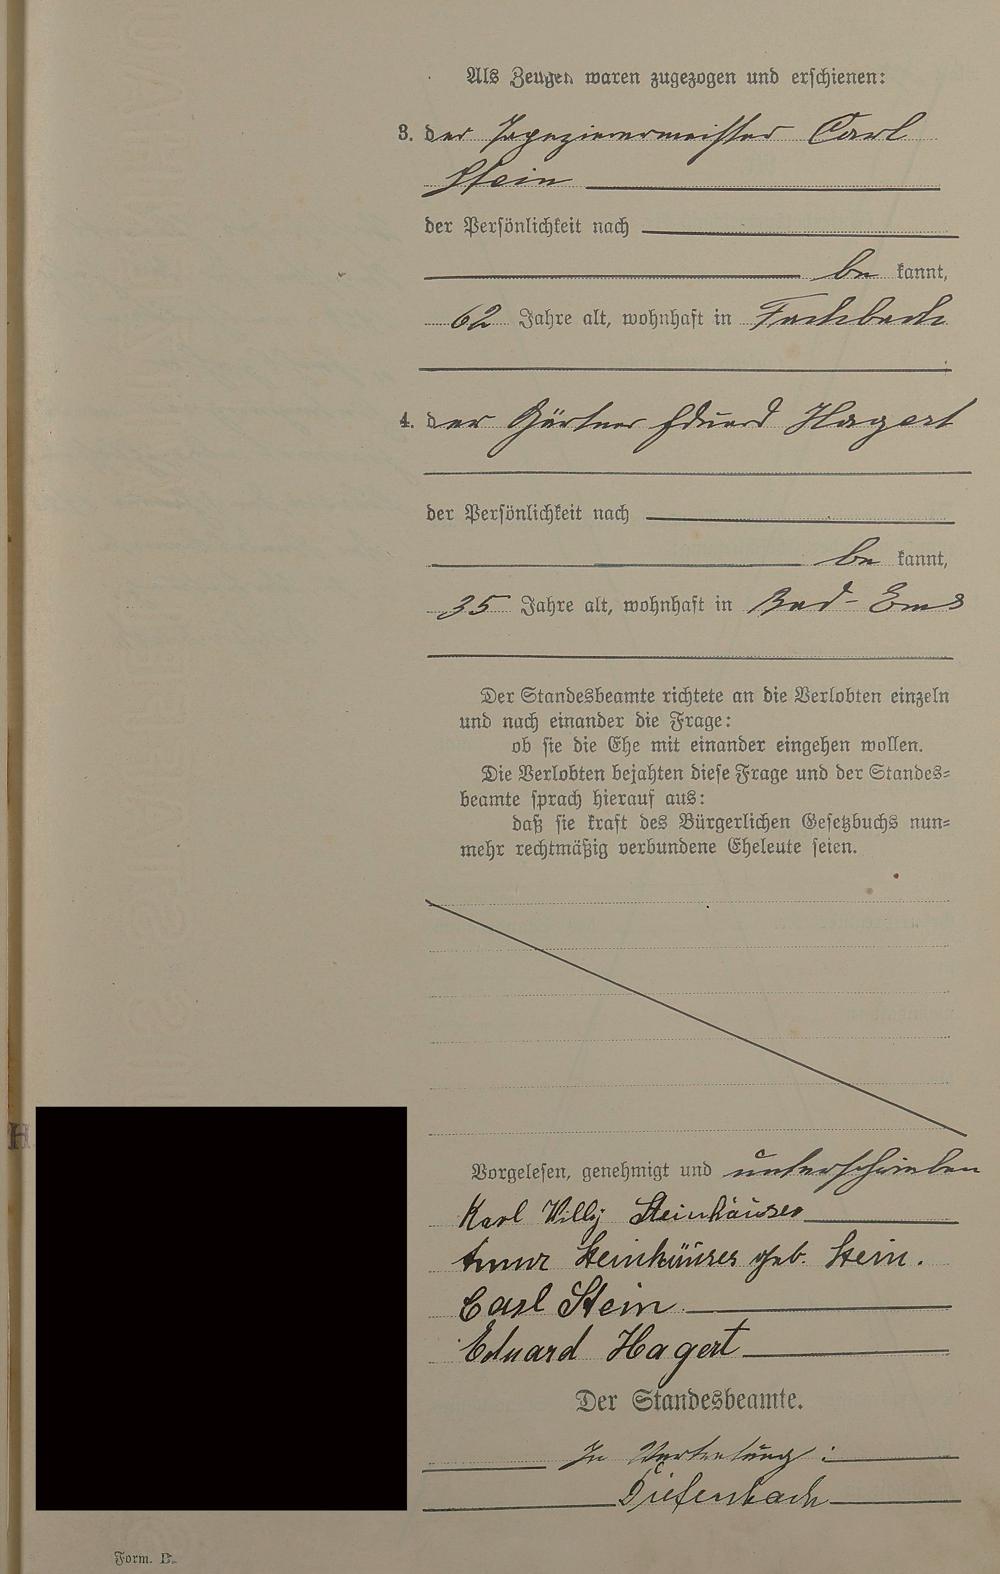 Als Zeugen waren zugezogen und erschienen:
3. der Tapezierermeister Carl
Stein
der Persönlichkeit nach
be kannt,
62 Jahre alt, wohnhaft in Fachbach
4. der Gärtner Eduard Hagert
der Persönlichkeit nach
be kannt,
35 Jahre alt, wohnhaft in Bad-Ems
Der Standesbeamte richtete an die Verlobten einzeln
und nach einander die Frage:
ob sie die Ehe mit einander eingehen wollen.
Die Verlobten bejahten diese Frage und der Standes-
beamte sprach hierauf aus:
daß sie kraft des Bürgerlichen Gesetzbuchs nun-
mehr rechtmäßig verbundene Eheleute seien.
Vorgelesen, genehmigt und unterschrieben
Karl Willy Steinhäuser
Anna Steinhäuser geb. Stein.
Carl Stein
Eduard Hagert
Der Standesbeamte.
In Vertretung:
Diefenbach
Form. B.